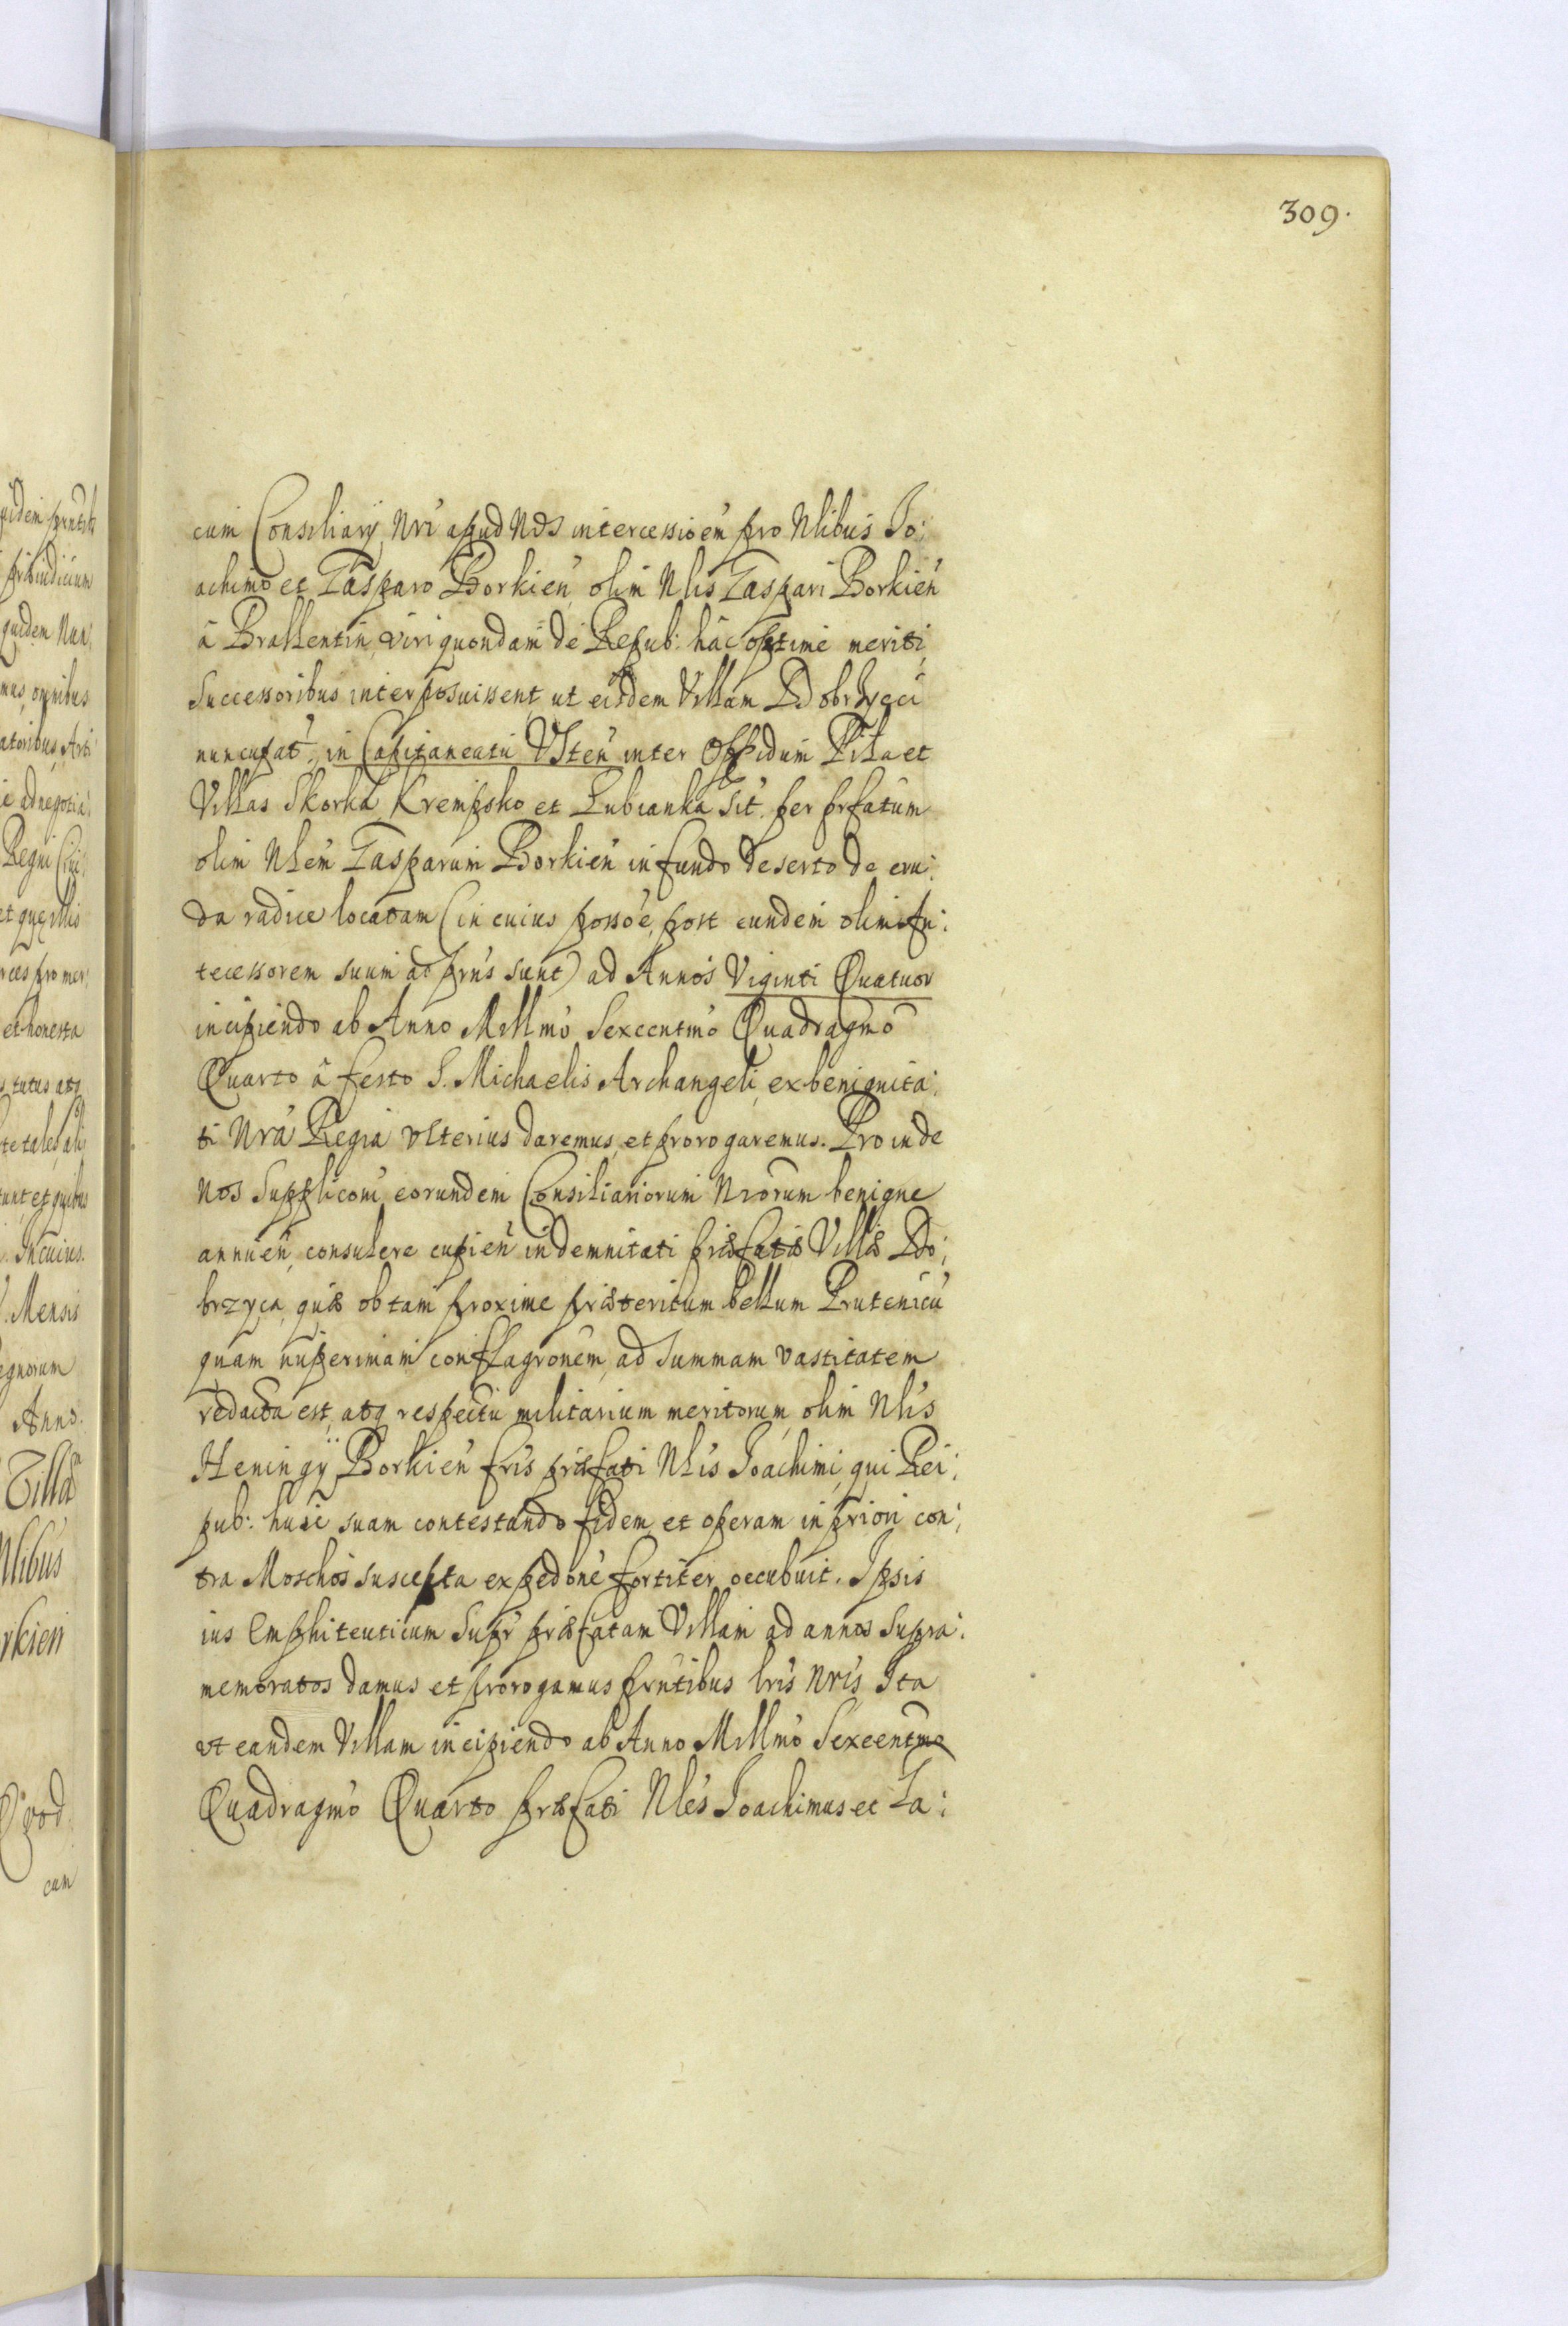 309.
cum Consiliarÿ Nri apud Nos intercessioem pro Nlibus Jo:
achimo et Casparo Borkien̄ olim Nlis Caspari Borkien̄
à Brallentin, viri quondam de Repub: hac optime meriti,
Successoribus interposuissent ut eisdem Villam Dobrzyca
nuncupat. in Capitaneatu Usten̄ inter Oppidum Pila et
Villas Skorka, Krempsko et Lubianka sit. per prfatum
olim Nlem Casparum Borkien̄ in fundo deserto de cru:
da radice locatam (in cuius possoe, post eundem olim An:
tecessorem suum ad prns sunt) ad Annos Viginti Quatuor
incipiendo ab Anno Millmo Sexcentmo Quadragmo
Quarto à festo S. Michaelis Archangeli, ex benignita:
ti Nra Regia ulterius daremus, et prorogaremus. Proinde
Nos Suppliconi eorundem Consiliariorum Nrorum benigne
annuen̄, consulere cupien̄ indemnitati præfatæ Villæ Do:
brzyca, quæ ob tam proxime præteritum bellum Prutenicū
quam nuperimam conflagronem, ad summam vastitatem
redacta est, atq respectu militarium meritorum, olim Nlis
Heningÿ Borkien̄ fris præfati Nlis Joachimi, qui Rei:
pub: huic suam contestando fidem et operam in priori con:
tra Moschos suscepta expedone fortiter occubuit. Ipsis
ius Emphiteuticum supr præfatam Villam ad annos supra:
memoratos damus et prorogamus prntibus lris Nris Ita
ut eandem Villam incipiendo ab Anno Millmo Sexcentmo
Quadragmo Quarto præfati Nles Joachimus et Ca: